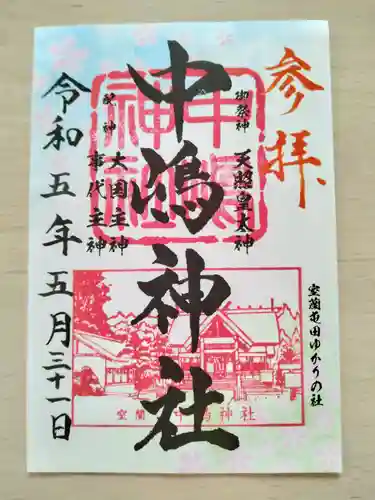 参拝
室蘭屯田ゆかりの社
御祭神
天照皇大神
中嶋神社
配神
大国主神
事代主神
令和五年五月三十一日
中嶋神社
室蘭 中嶋神社